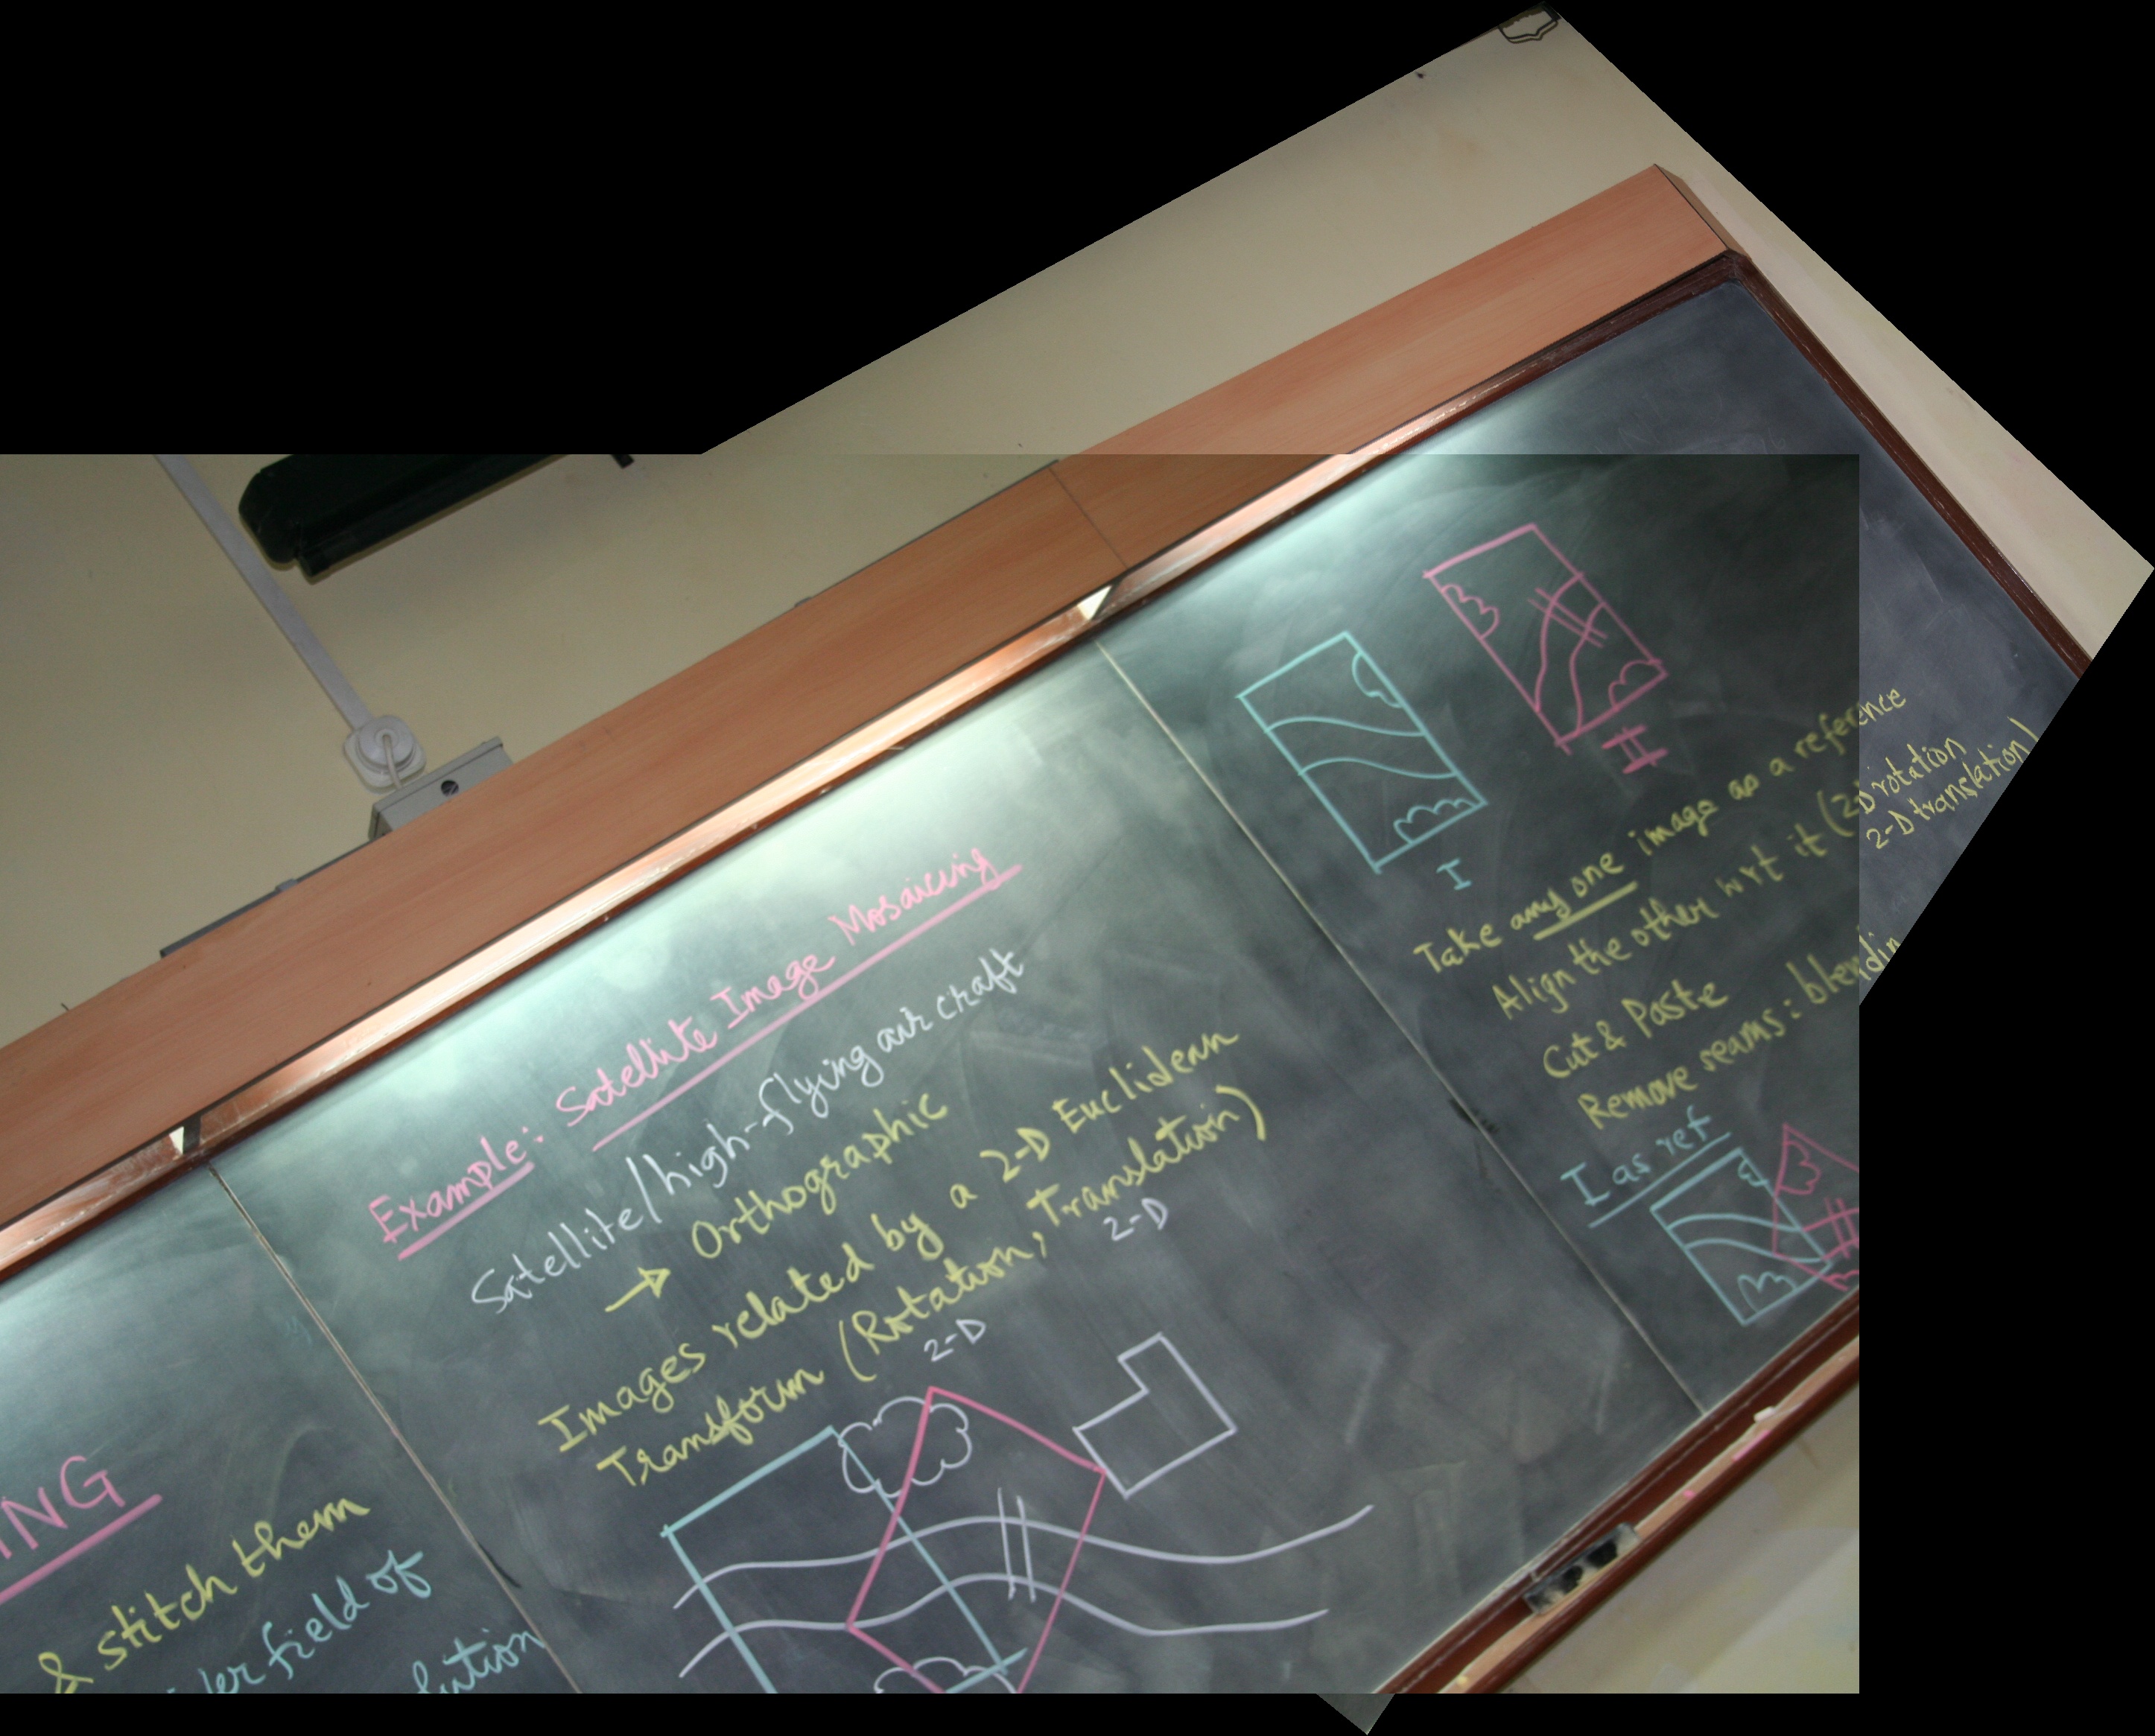 ING
& stitch them
er field of
lution
Example: Satellite Image Mosaicing
Satellite/high-flying air craft
→ Orthographic
Images related by a 2-D Euclidean
Transform (Rotation, Translation)
2-D 2-D
I
II
Take any one image as a reference
Align the other wrt it (2-D rotation
2-D translation)
Cut & Paste
Remove seams: blendin
I as ref